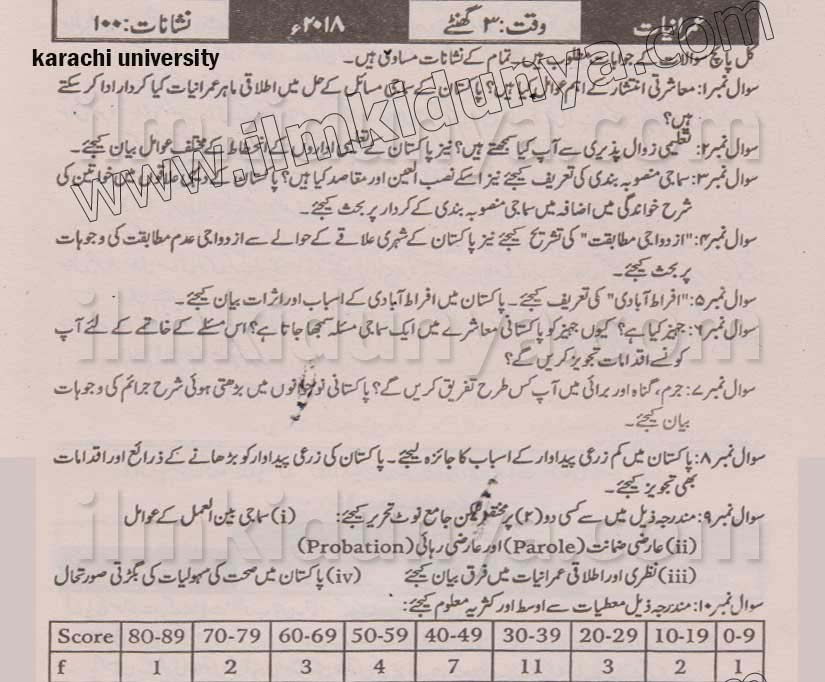 عمرانیات وقت: ۳ گھنٹے ۲۰۱۸ء نشانات: ۱۰۰
karachi university
کل پانچ سوالات کے جوابات مطلوب ہیں۔ تمام کے نشانات مساوی ہیں۔
سوال نمبر۱: معاشرتی انتشار کے اہم عوامل کیا ہیں؟ پاکستان کے سماجی مسائل کے حل میں اطلاقی ماہر عمرانیات کیا کردار ادا کر سکتے
ہیں؟
سوال نمبر۲: تعلیمی زوال پذیری سے آپ کیا سمجھتے ہیں؟ نیز پاکستان کے تعلیمی اداروں کے انحطاط کے مختلف عوامل بیان کیجئے۔
سوال نمبر۳: سماجی منصوبہ بندی کی تعریف کیجئے نیز اسکے نصب العین اور مقاصد کیا ہیں؟ پاکستان کے دیہی علاقوں میں خواتین کی
شرح خواندگی میں اضافہ میں سماجی منصوبہ بندی کے کردار پر بحث کیجئے۔
سوال نمبر۴: "ازدواجی مطابقت" کی تشریح کیجئے نیز پاکستان کے شہری علاقے کے حوالے سے ازدواجی عدم مطابقت کی وجوہات
پر بحث کیجئے۔
سوال نمبر۵: "افراط آبادی" کی تعریف کیجئے۔ پاکستان میں افراط آبادی کے اسباب اور اثرات بیان کیجئے۔
سوال نمبر۶: جہیز کیا ہے؟ کیوں جہیز کو پاکستانی معاشرے میں ایک سماجی مسئلہ سمجھا جاتا ہے؟ اس مسئلے کے خاتمے کے لئے آپ
کونسے اقدامات تجویز کریں گے؟
سوال نمبر۷: جرم، گناہ اور برائی میں آپ کس طرح تفریق کریں گے؟ پاکستانی نوجوانوں میں بڑھتی ہوئی شرح جرائم کی وجوہات
بیان کیجئے۔
سوال نمبر۸: پاکستان میں کم زرعی پیداوار کے اسباب کا جائزہ لیجئے۔ پاکستان کی زرعی پیداوار کو بڑھانے کے ذرائع اور اقدامات
بھی تجویز کیجئے۔
سوال نمبر۹: مندرجہ ذیل میں سے کسی دو (۲) پر مختصر لیکن جامع نوٹ تحریر کیجئے: (i) سماجی بین العمل کے عوامل
(ii) عارضی ضمانت (Parole) اور عارضی رہائی (Probation)
(iii) نظری اور اطلاقی عمرانیات میں فرق بیان کیجئے (iv) پاکستان میں صحت کی سہولیات کی بگڑتی صورتحال
سوال نمبر۱۰: مندرجہ ذیل معطیات سے اوسط اور کثریہ معلوم کیجئے:
Score 80-89 70-79 60-69 50-59 40-49 30-39 20-29 10-19 0-9
f 1 2 3 4 7 11 3 2 1
www.ilmkidunya.com
ilmkidunya.com
ilmkidunya.com
ilmkidunya.com